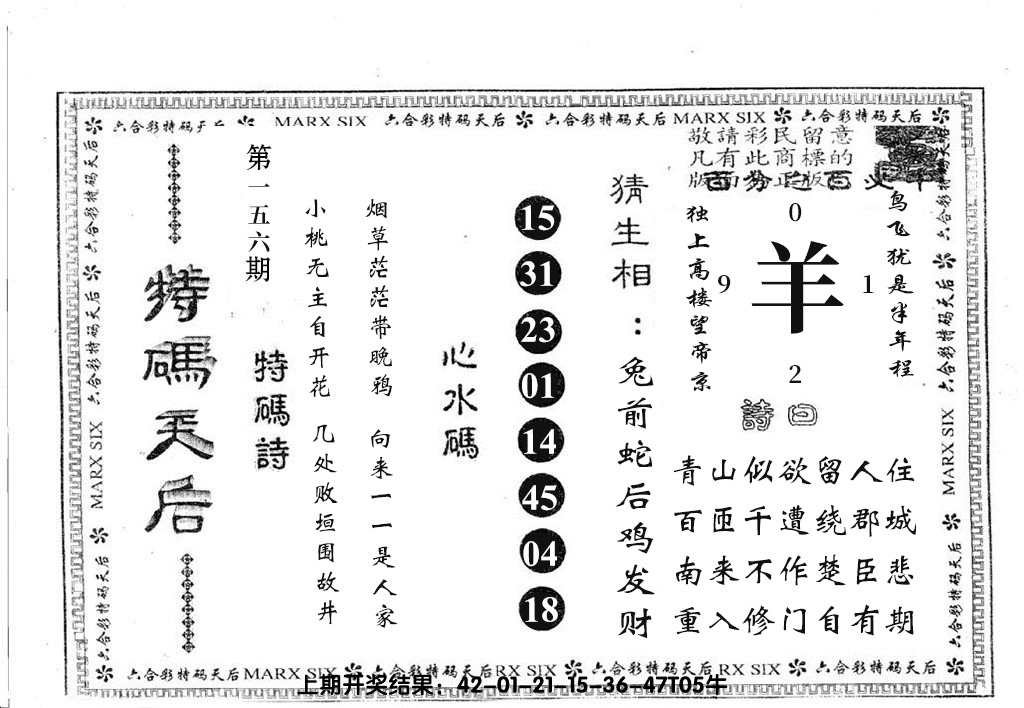 六合彩特码天后 MARX SIX 六合彩特码天后 六合彩特码天后 MARX SIX 六合彩特码天后
敬請彩民留意
凡有此商標的
版面为正版
百分之百
特碼天后
第一五六期
特碼詩
小桃无主自开花
烟草茫茫带晚鸦
几处败垣围故井
向来一一是人家
心水碼
15
31
23
01
14
45
04
18
猜生相：兔前蛇后鸡发财
独上高楼望帝京
鸟飞犹是半年程
0
9
羊
1
2
詩曰
青山似欲留人住
百匝千遭绕郡城
南来不作楚臣悲
重入修门自有期
六合彩特码天后
MARX SIX
六合彩特码天后
六合彩特码天后
六合彩特码天后
六合彩特码天后
MARX SIX
六合彩特码天后
六合彩特码天后 MARX SIX 六合彩特码天后 RX SIX 六合彩特码天后 RX SIX 六合彩特码天后
上期开奖结果：42-01-21-15-36-47T05牛